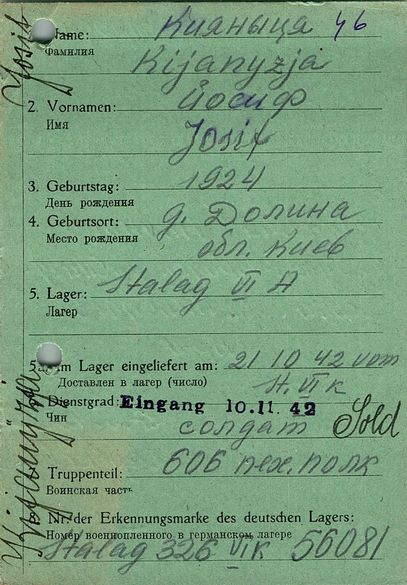 1. Name: Кияныца 46
Фамилия
Kijanyzja
2. Vornamen: Йосиф
Имя
Josif
3. Geburtstag: 1924
День рождения
4. Geburtsort: д. Долина
Место рождения
обл. Киев
5. Lager: Stalag VI A
Лагер
5a. Im Lager eingeliefert am: 21 10 42 vom
Доставлен в лагер (число)
St. VI K
6. Dienstgrad: Eingang 10.11.42
Чин
солдат Sold
Truppenteil: 606 пех. полк
Воинская часть
Nr. der Erkennungsmarke des deutschen Lagers:
Номер военнопленного в германском лагере
Stalag 326 VI K 56081
Kijanyzja
Josif